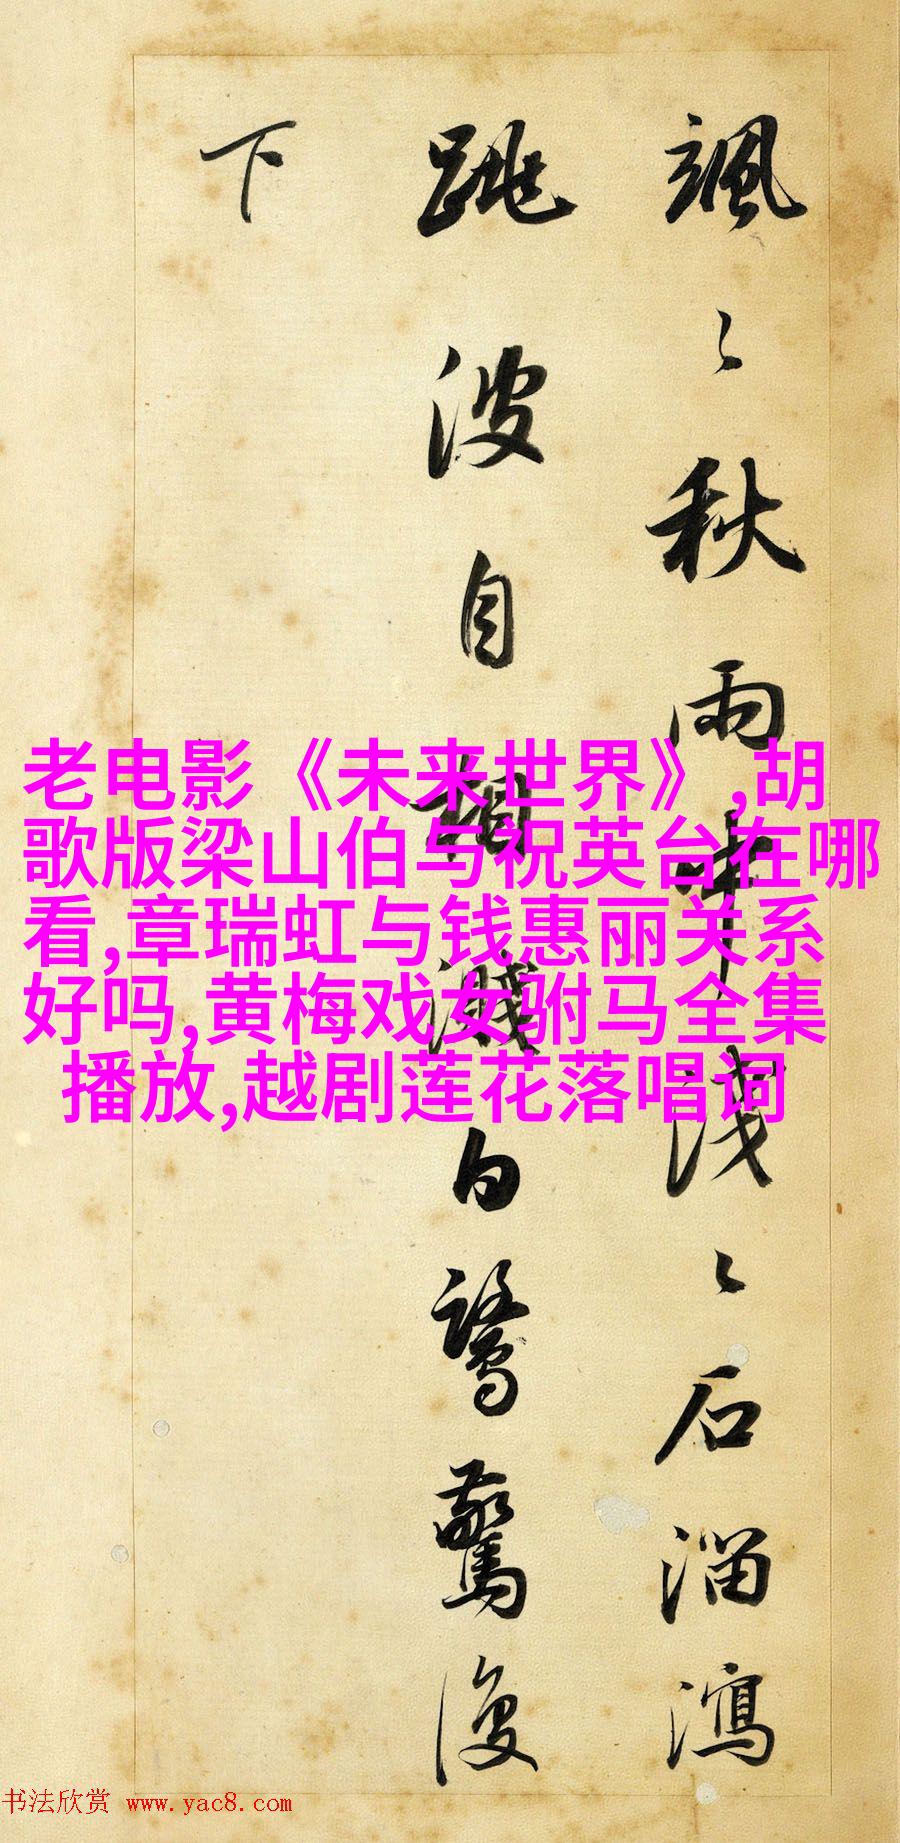 颯〻秋雨中淺〻石溜瀉
跳波自相濺白鷺驚復
下
老电影《未来世界》,胡
歌版梁山伯与祝英台在哪
看,章瑞虹与钱惠丽关系
好吗,黄梅戏女驸马全集
播放,越剧莲花落唱词
书法欣赏 www.yac8.com